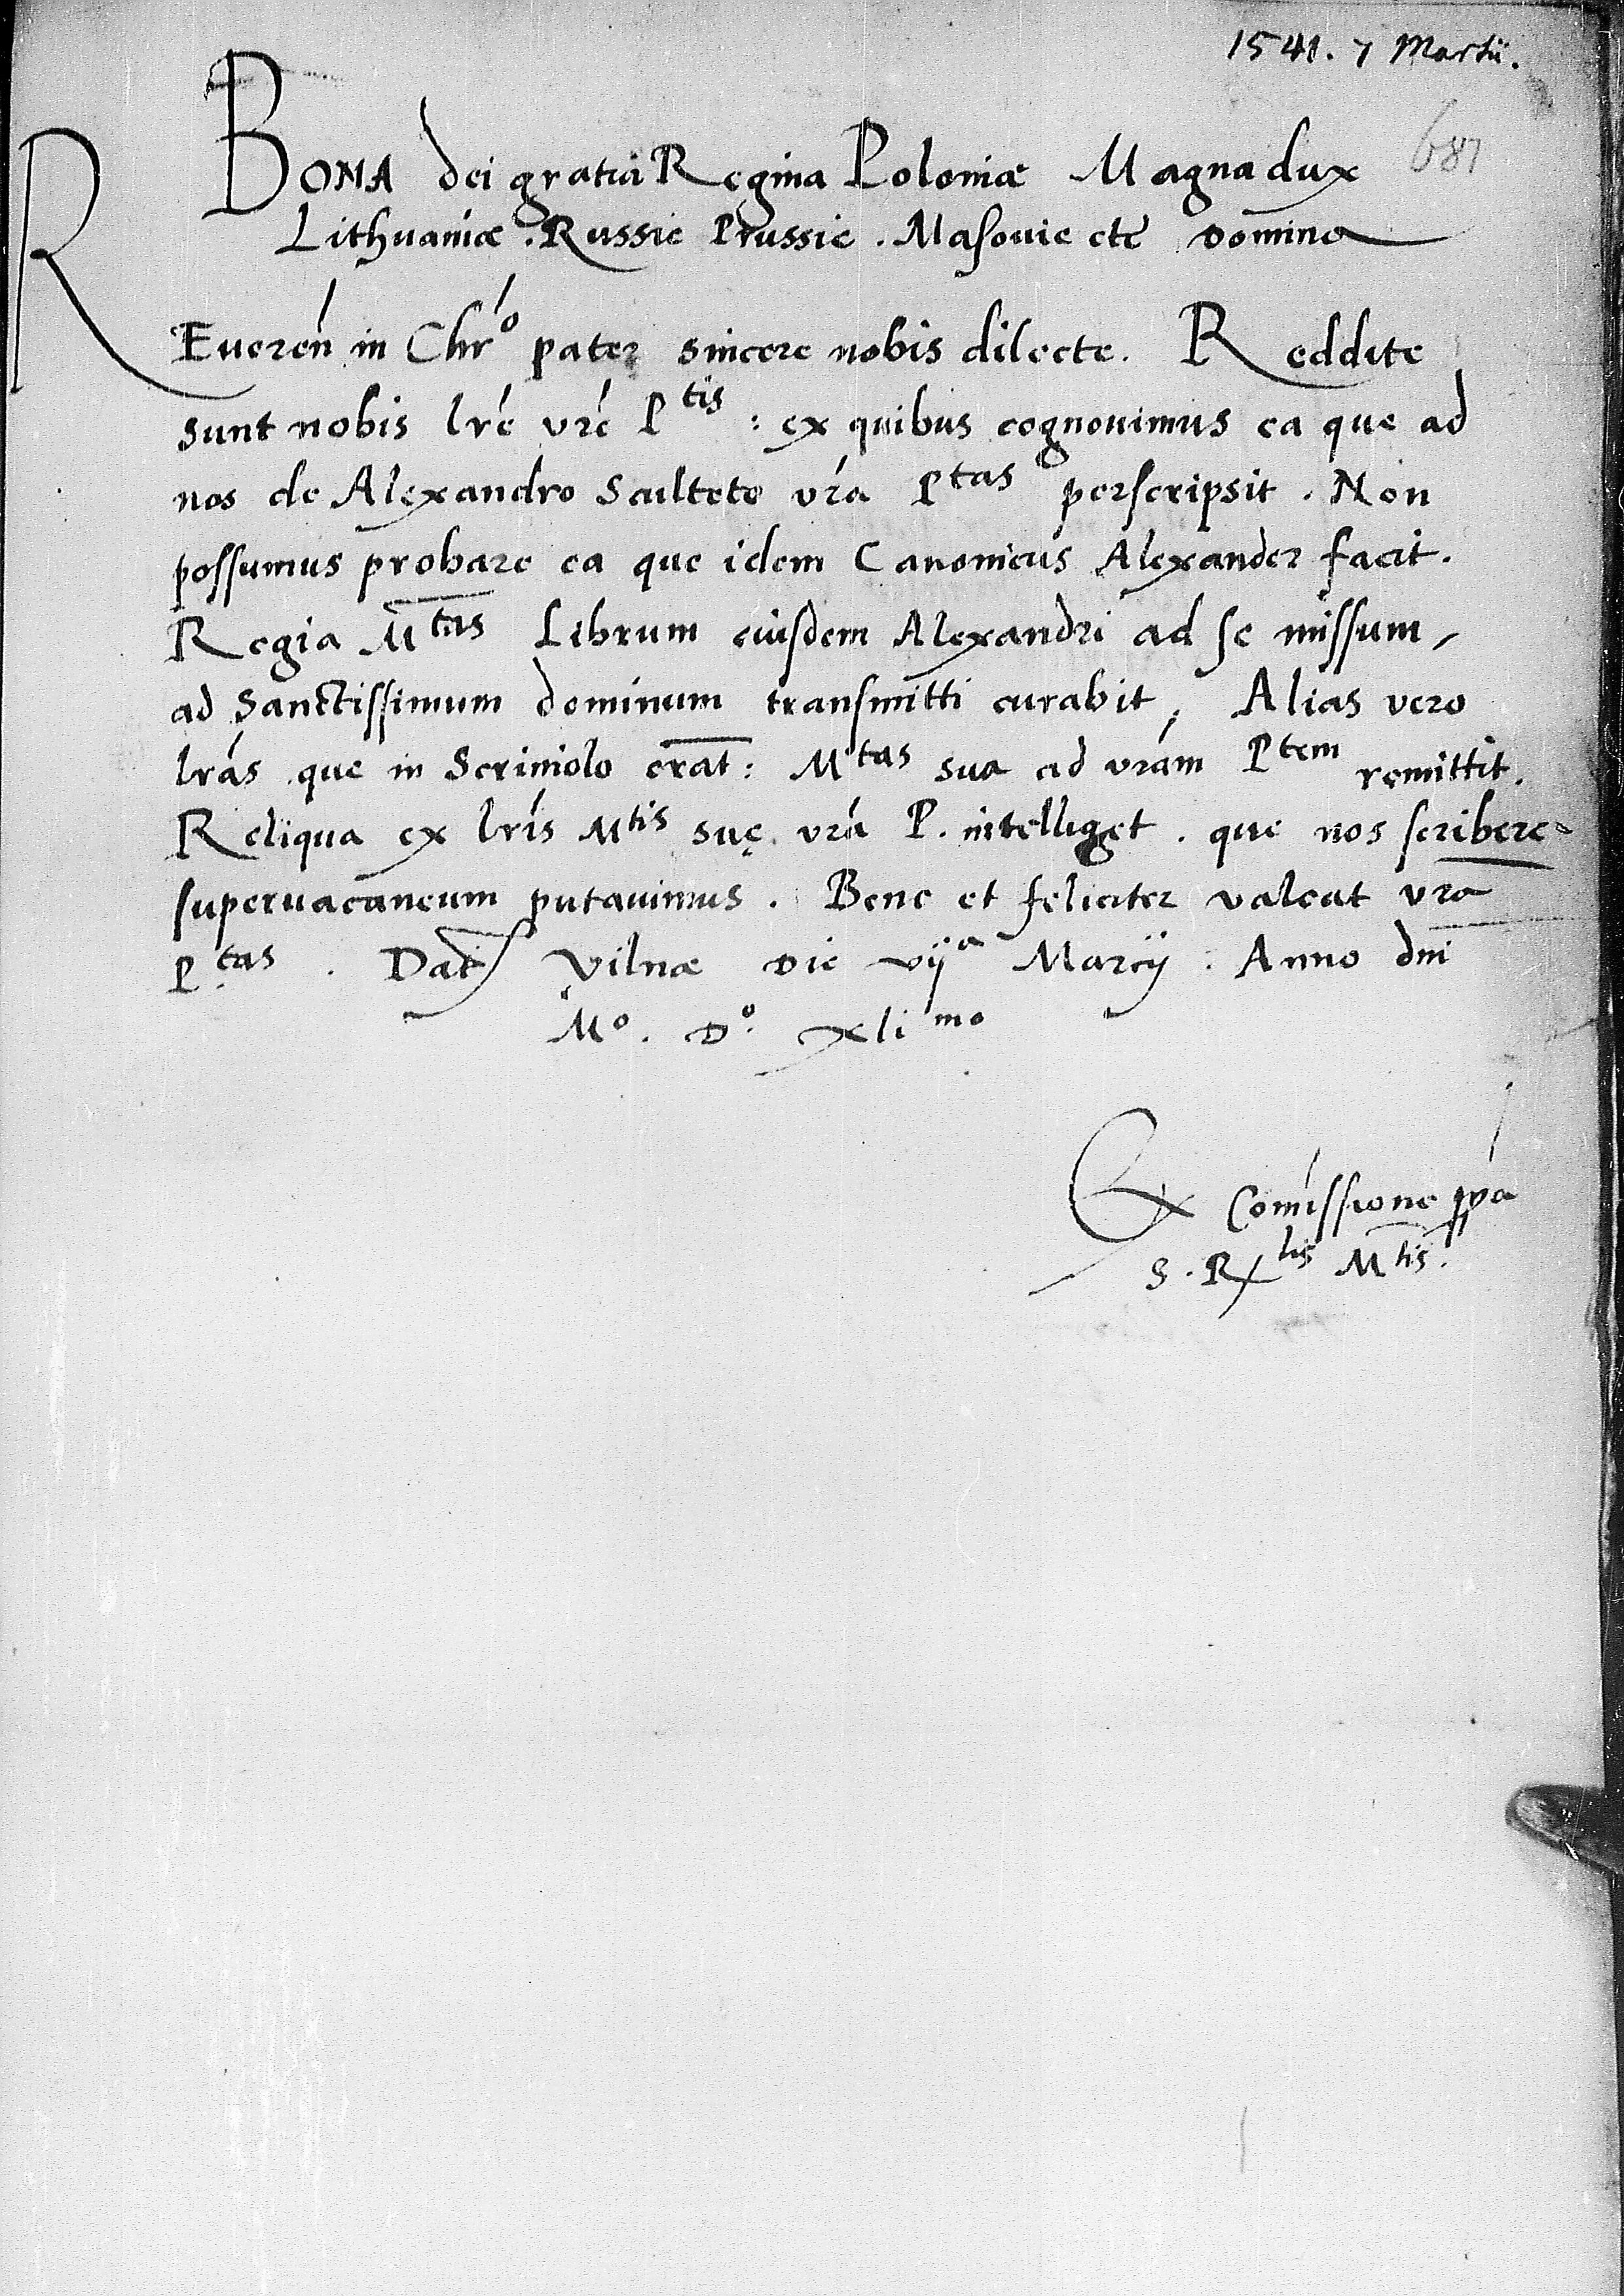 1541. 7 Martii.
687
BONA dei gratia Regina Poloniæ Magna dux
Lithuaniæ. Russie Prussie. Masouie etc̃ Domina
REueren̄ in Chr̄o pater sincere nobis dilecte. Reddite
sunt nobis lr̄e vr̄e Ptis: ex quibus cognouimus ea que ad
nos de Alexandro Sculteto vr̄a Ptas perscripsit. Non
possumus probare ea que idem Canonicus Alexander facit.
Regia Mtas Librum eiusdem Alexandri ad se missum,
ad Sanctissimum dominum transmitti curabit, Alias vero
lr̄as que in Scriniolo erāt: Mtas sua ad vr̄am Ptem remittit.
Reliqua ex lr̄is Mtis suę vr̄a P. intelliget. que nos scribere
superuacaneum putauimus. Bene et feliciter valeat vr̄a
Ptas. Dat Vilnæ Die vija Marcij. Anno dn̄i
Mo. Do. xlimo
Ex Com̄issione pp̄a
S. Rtis Mtis.